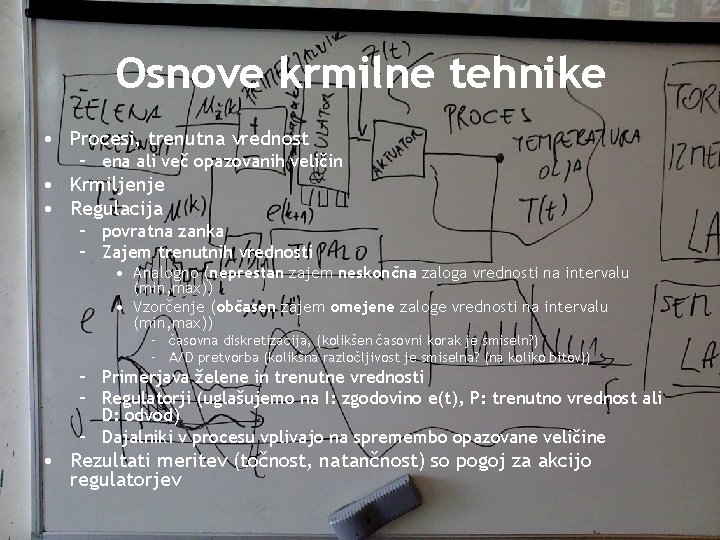 Osnove krmilne tehnike
• Procesi, trenutna vrednost
– ena ali več opazovanih veličin
• Krmiljenje
• Regulacija
– povratna zanka
– Zajem trenutnih vrednosti
• Analogno (neprestan zajem neskončna zaloga vrednosti na intervalu
(min,max))
• Vzorčenje (občasen zajem omejene zaloge vrednosti na intervalu
(min,max))
– časovna diskretizacija, (kolikšen časovni korak je smiseln?)
– A/D pretvorba (kolikšna razločljivost je smiselna? (na koliko bitov))
– Primerjava želene in trenutne vrednosti
– Regulatorji (uglašujemo na I: zgodovino e(t), P: trenutno vrednost ali
D: odvod)
– Dajalniki v procesu vplivajo na spremembo opazovane veličine
• Rezultati meritev (točnost, natančnost) so pogoj za akcijo
regulatorjev
ŽELENA
VREDNOST
REGULATOR
Z(t)
AKTUATOR
PROCES
TEMPERATURA
OLJA
T(t)
e(k+1)
TIPALO
e
0